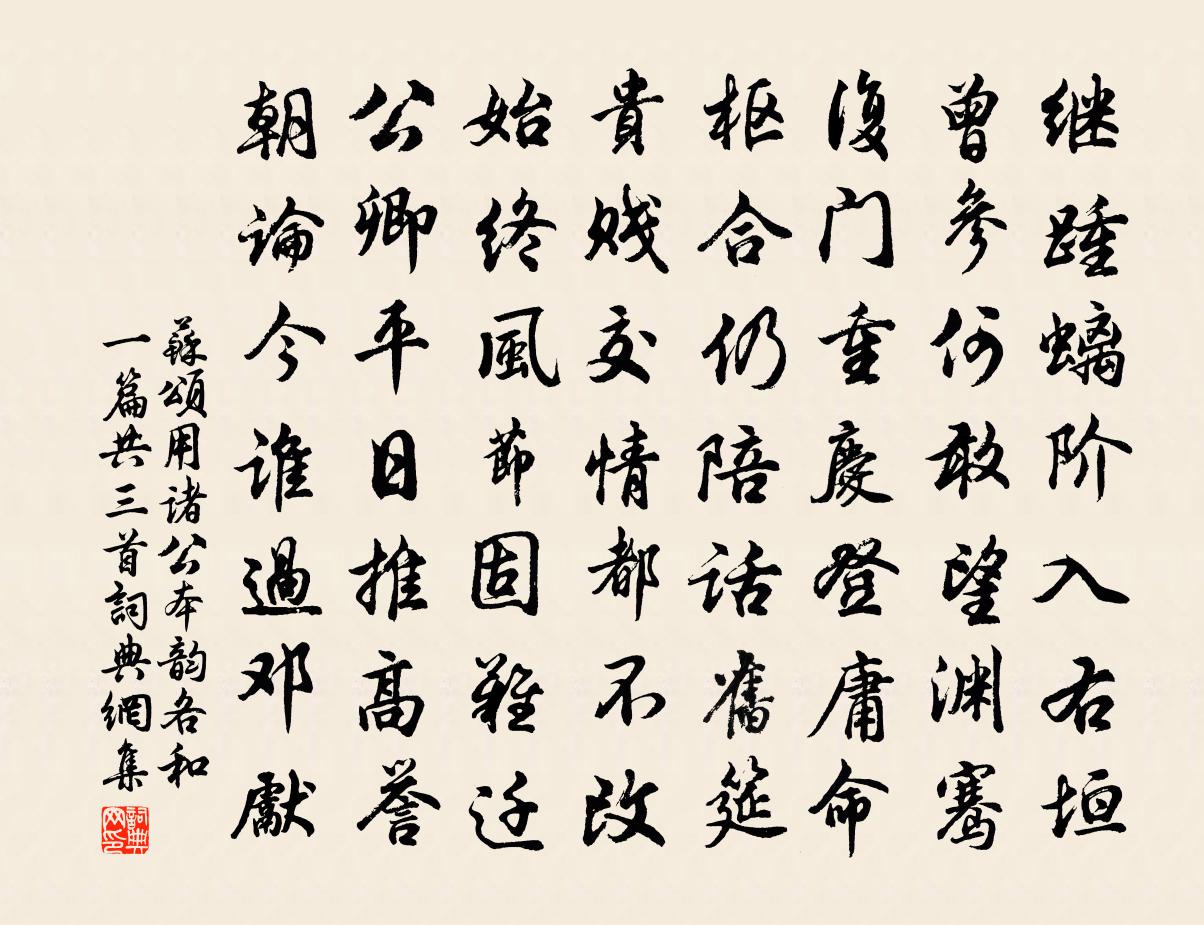 继踵螭阶入右垣
曾参何敢望渊骞
復门重慶登庸命
枢合仍陪话舊筵
貴贱交情都不改
始终風節固難迁
公卿平日推高誉
朝論今谁過邓獻
蘇頌用诸公本韵各和
一篇共三首詞典網集
詞典网印